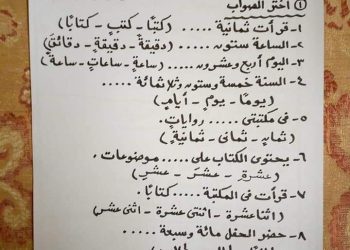 ① اختر الصواب
١- قرأت ثمانية ..... (كتبًا - كتبٍ - كتابًا)
٢- الساعة ستون ..... (دقيقةً - دقيقةٍ - دقائقَ)
٣- اليوم أربع وعشرون ..... (ساعةٍ - ساعاتٍ - ساعةً)
٤- السنة خمسة وستون وثلاثمائة .....
(يومًا - يومٍ - أيامٍ)
٥- فى مكتبتى ..... روايات.
(ثمانٍ - ثمانى - ثمانية)
٦- يحتوى الكتاب على ..... موضوعات.
(عشرة - عشرَ - عشرِ)
٧- قرأت فى المكتبة ..... كتابًا.
(اثنا عشرة - اثنتى عشرة - اثنى عشر)
٨- حضر الحفل مائة وسبعة .....